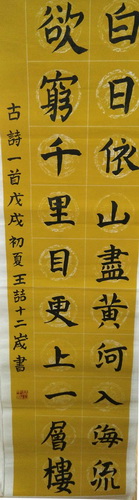 白日依山盡黃河入海流
欲窮千里目更上一層樓
古詩一首戊戌初夏王喆十二歲書